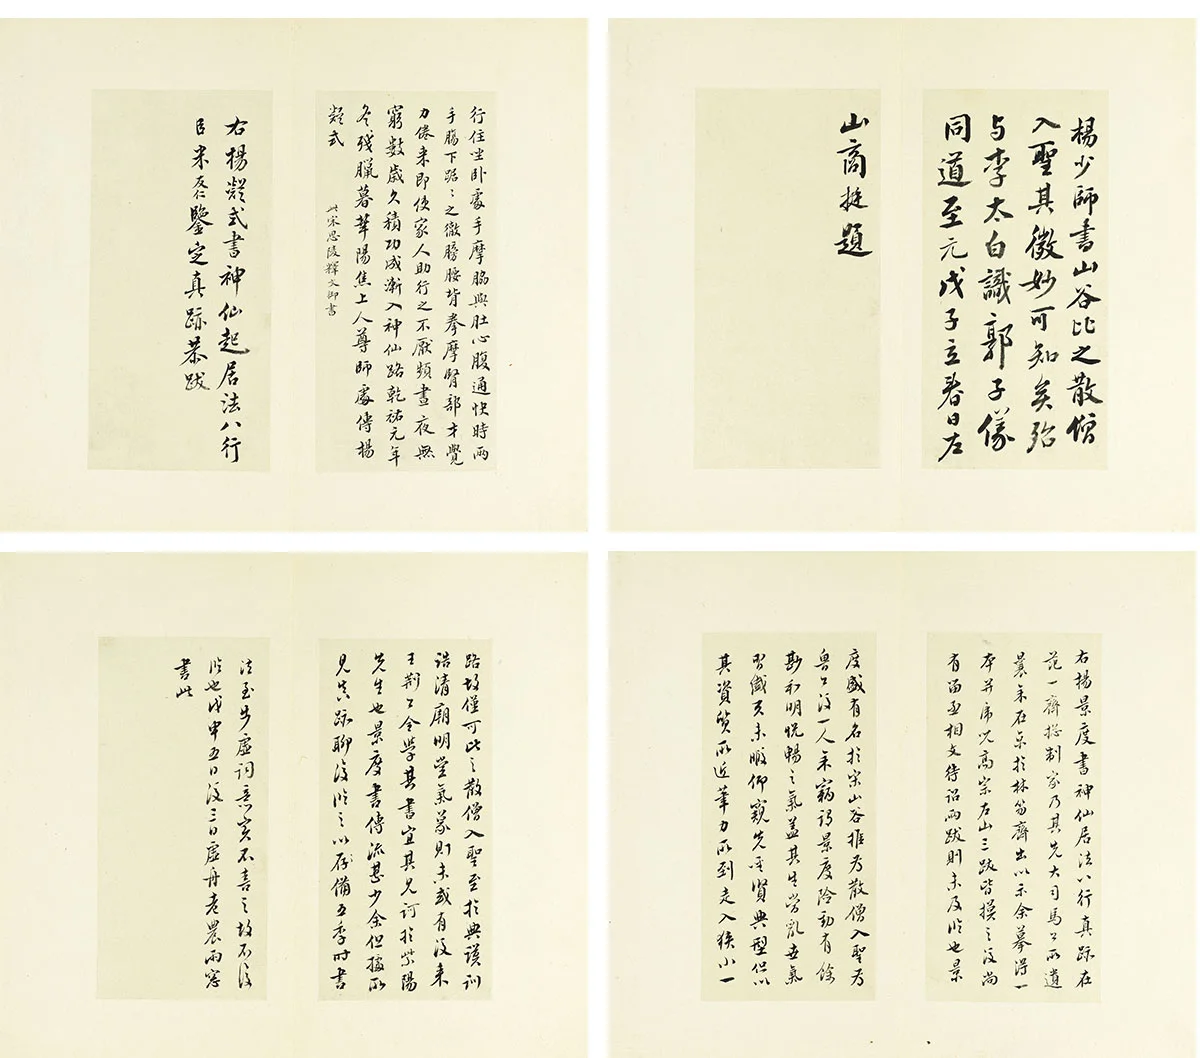 行住坐卧處手摩脇與肚心腹通快時兩
手腸下踞〻之徹膀腰背拳摩腎部才覺
力倦來即使家人助行之不厭頻晝夜無
窮數歲久積功成漸入神仙路乾祐元年
冬殘臘暮華陽焦上人尊師處傳楊
凝式
此宋思陵釋文御書
右楊凝式書神仙起居法八行
臣米友仁鑒定真跡恭跋
楊少師書山谷比之散僧
入聖其微妙可知矣殆
与李太白識郭子儀
同道至元戊子立春日左
山商挺題
右楊景度書神仙居法八行真跡在
范一齋總制家乃其先大司馬公所遺
曩余在京於林笏齋出以示余摹得一
本并宋高宗左山三跋皆摸之後尚
有留丞相文待詔兩跋則未及臨也景
度盛有名於宋山谷推為散僧入聖為
魯公後一人余竊謂景度險勁有餘
尠和明悅暢之氣蓋其生當亂世氣
習盛未暇仰窺先聖賢典型但以
其資質所近筆力所到走入狹小一
路故僅可比之散僧入聖至於典謨訓
誥清廟明堂氣象則未或有後來
王荊公令學其書宜其見訶於紫陽
先生也景度書傳流甚少余但據所
見真跡聊復臨之以存備五季時書
法至步虛詞意實不喜之故不復
臨也戊申五日後三日虛舟老農雨窗
書此